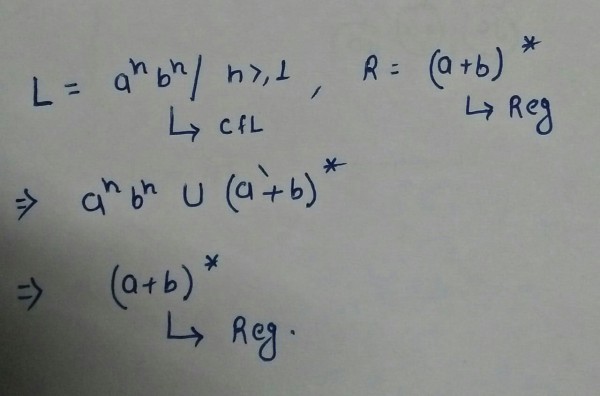 L = aⁿ bⁿ / n ≥ 1 , R = (a+b)*
↳ CFL ↳ Reg
⇒ aⁿ bⁿ ∪ (a+b)*
⇒ (a+b)*
↳ Reg.